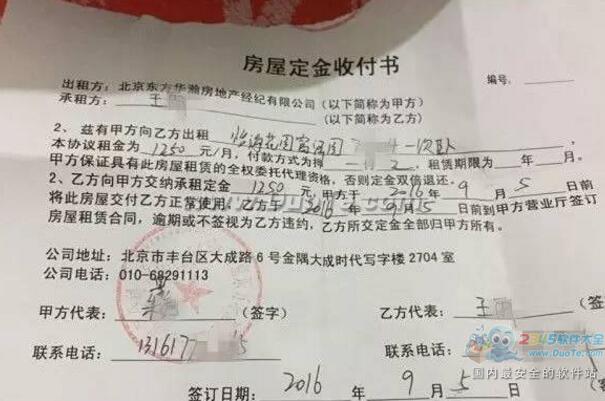 房屋定金收付书
编号:
出租方:北京东方华瀚房地产经纪有限公司(以下简称为甲方)
承租方:王 (以下简称为乙方)
2、兹有甲方向乙方出租 怡海花园富润园 4 一次卧
本协议租金为 1250 元/月,付款方式为押 一付 2 ,租赁期限为 年 月。
甲方保证具有此房屋租赁的全权委托代理资格,否则定金双倍退还。
2、乙方向甲方交纳承租定金 1250 元,甲方于 2016 年 9 月 5 日前
将此房屋交付乙方正常使用,乙方于 2016 年 9 月 5 日前到甲方营业厅签订
房屋租赁合同,逾期或不签视为乙方违约,乙方所交定金全部归甲方所有。
公司地址:北京市丰台区大成路6号金隅大成时代写字楼2704室
公司电话:010-68291113
甲方代表: (签字) 乙方代表:王 (签
联系电话:1316177 15 联系电话:
签订日期:2016 年 9 月 5 日
2345软件大全
www.DuoTe.com
国内最安全的软件站